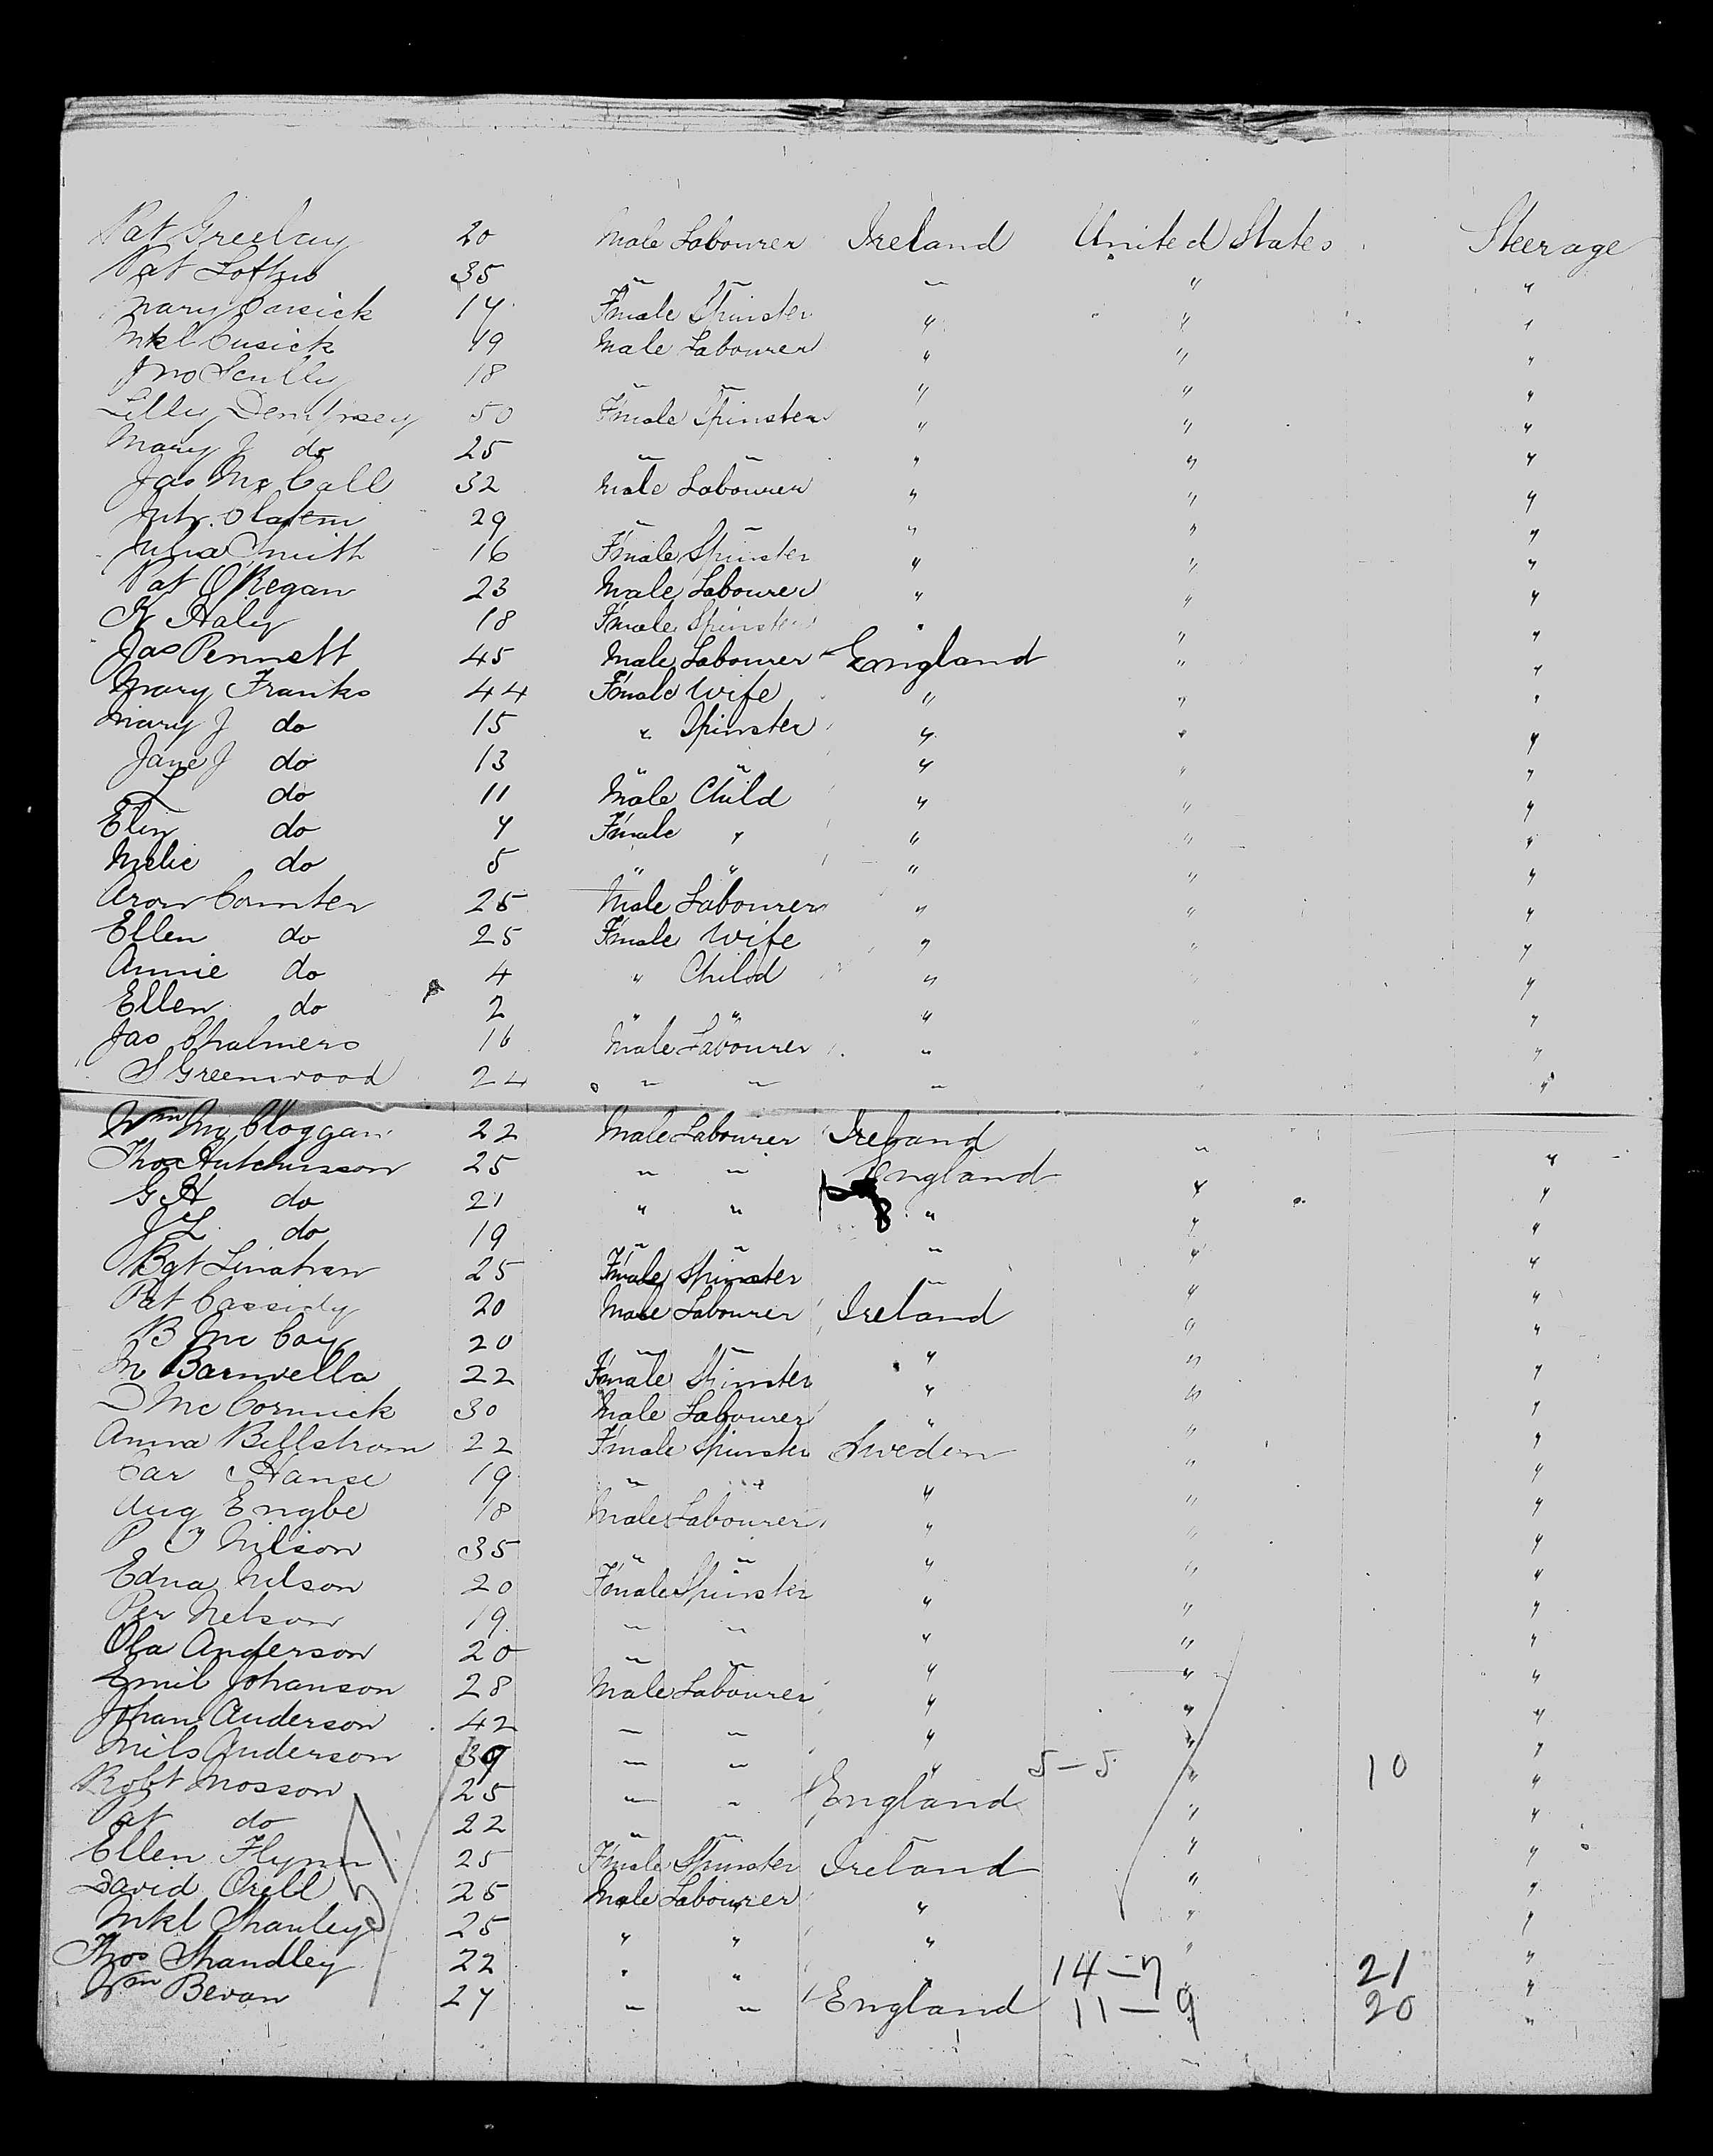 Pat Greelay 20 Male Labourer Ireland United States Steerage
Pat Loftus 35 " " " " "
Mary Cusick 14 Fmale Spinster " " "
Mkl Cusick 49 Male Labourer " " "
Jno Scully 18 " " " " "
Lilly Dempsey 50 Fmale Spinster " " "
Mary J do 25 " " " " "
Jas McCall 32 Male Labourer " " "
29 " " " " "
Julia Smith 16 Fmale Spinster " " "
Pat O'Regan 23 Male Labourer " " "
K Haley 18 Fmale Spinster " " "
Jas Pennett 45 Male Labourer England " "
Mary Franks 44 Fmale Wife " " "
Mary J do 15 " Spinster " " "
Jane J do 13 " " " " "
L do 11 Male Child " " "
Eliz do 7 Fmale " " " "
Melie do 5 " " " " "
Aron Counter 25 Male Labourer " " "
Ellen do 25 Fmale Wife " " "
Annie do 4 " Child " " "
Ellen do 2 " " " " "
Jas Chalmers 16 Male Labourer " " "
S Greenwood 24 " " " " "
Wm McCloggan 22 Male Labourer Ireland " "
Thos Hutchinson 25 " " England " "
G H do 21 " " " " "
J L do 19 " " " " "
Bgt Linahan 25 Fmale Spinster " " "
Pat Cassidy 20 Male Labourer Ireland " "
B McCoy 20 " " " " "
M Barnvella 22 Fmale Spinster " " "
D McCormick 30 Male Labourer " " "
Anna Billstrom 22 Fmale Spinster Sweden " "
Car Hanse 19 " " " " "
Aug Engbe 18 Male Labourer " " "
P J Nilson 35 " " " " "
Edna Nelson 20 Fmale Spinster " " "
Per Nelson 19 " " " " "
Ola Anderson 20 " " " " "
Emil Johanson 28 Male Labourer " " "
Johan Anderson 42 " " " " "
Nils Anderson 39 " " " 5-5 " 10 "
Robt Mosson 25 " " England " "
Pat do 22 " " " " "
Ellen Flynn 25 Fmale Spinster Ireland " "
David Orell 25 Male Labourer " " "
Mkl Shanley 25 " " " " "
Thos Shandley 22 " " " 14-7 " 21 "
Wm Bevan 27 " " England 11-9 " 20 "